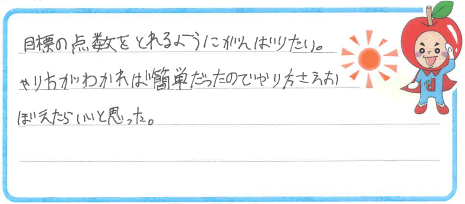 目標の点数をとれるようにがんばりたい。
やり方がわかれば簡単だったのでやり方さえお
ぼえたらいいと思った。